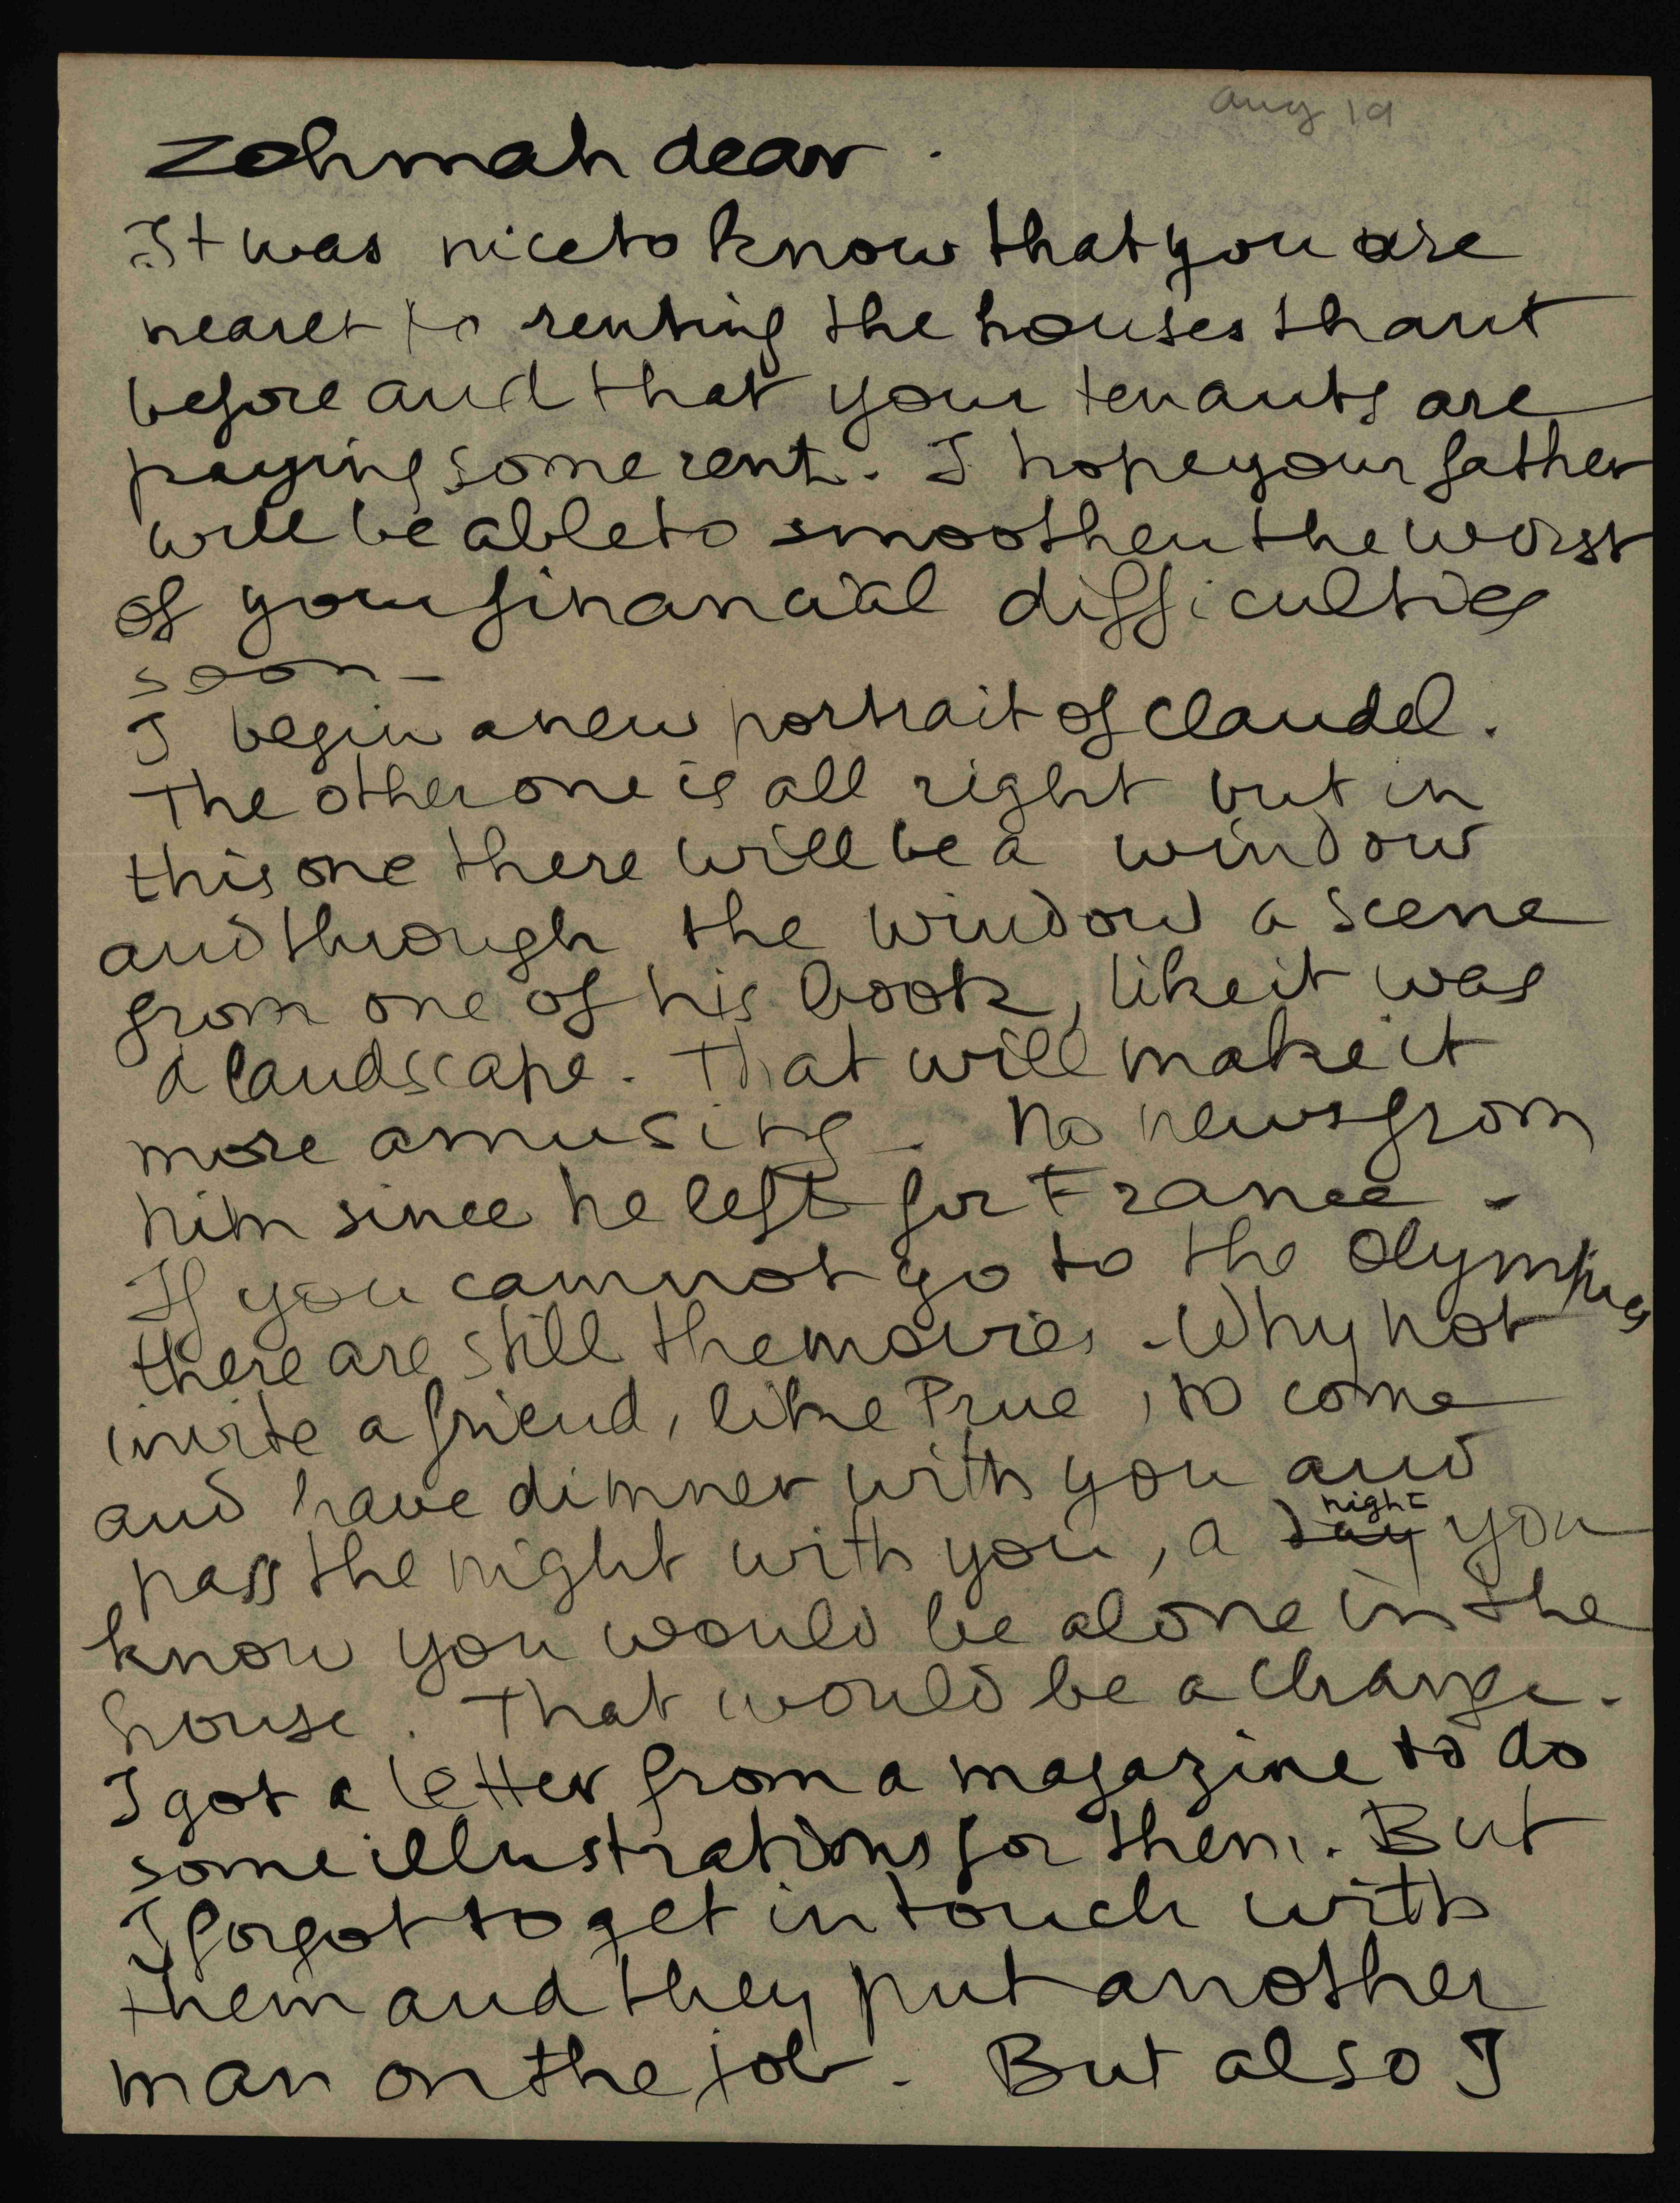 Aug 19
Zohmah dear.
It was nice to know that you are
nearer to renting the houses thant
before and that your tenants are
paying some rent. I hope your father
will be able to smoothen the worst
of your financial difficulties
soon -
I begin a new portrait of Claudel.
The other one is all right but in
this one there will be a window
and through the window a scene
from one of his book, like it was
a landscape. That will make it
more amusing - No news from
him since he left for France -
If you camnot go to the Olympics
there are still the movies - Why not
invite a friend, like Prue, to come
and have dimner with you and
pass the night with you, a ~~day~~ night you
know you would be alone in the
house. That would be a change.
I got a letter from a magazine to do
some illustrations for them. But
I forgot to get in touch with
them and they put another
man on the job - But also I